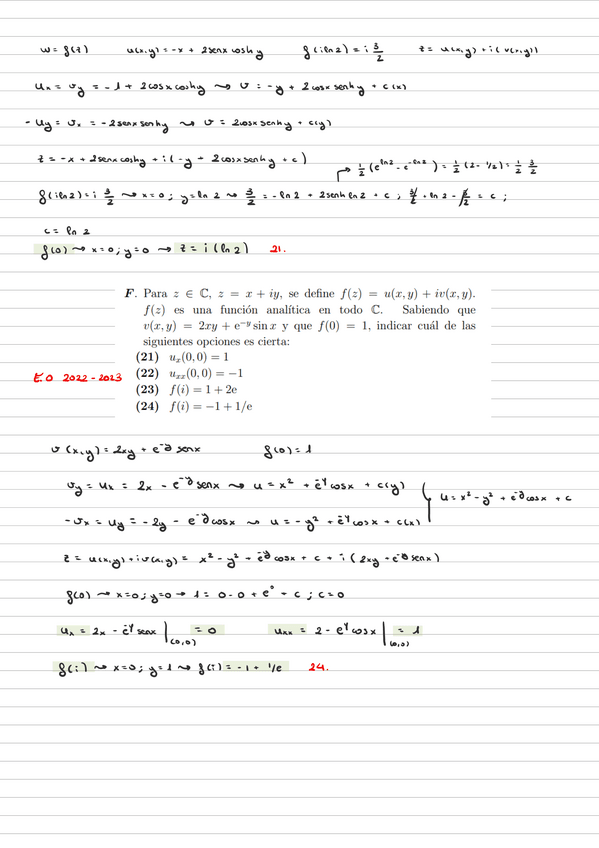 w = f(z) u(x,y) = -x + 2senx coshy f(iln2) = i 3/2 z = u(x,y) + i(v(x,y))
ux = vy = -1 + 2cosx coshy ⤳ v = -y + 2cosx senhy + c(x)
-uy = vx = -2senx senhy ⤳ v = 2cosx senhy + c(y)
z = -x + 2senx coshy + i(-y + 2cosx senhy + c)
→ 1/2 (e^ln2 - e^-ln2) = 1/2 (2 - 1/2) = 1/2 3/2
f(iln2) = i 3/2 ⤳ x=0; y=ln 2 ⤳ 3/2 = -ln2 + 2senh ln2 + c; 3/2 + ln2 - 3/2 = c;
c = ln 2
f(0) ⤳ x=0; y=0 → z = i(ln2) 21.
F. Para z ∈ ℂ, z = x + iy, se define f(z) = u(x, y) + iv(x, y).
f(z) es una función analítica en todo ℂ. Sabiendo que
v(x, y) = 2xy + e^−y sin x y que f(0) = 1, indicar cuál de las
siguientes opciones es cierta:
(21) u_x(0, 0) = 1
(22) u_xx(0, 0) = −1
E.O 2022-2023
(23) f(i) = 1 + 2e
(24) f(i) = −1 + 1/e
v(x,y) = 2xy + e^-y senx f(0) = 1
vy = ux = 2x - e^-y senx ⤳ u = x² + e^-y cosx + c(y)
u = x² - y² + e^-y cosx + c
-vx = uy = -2y - e^-y cosx ⤳ u = -y² + e^-y cosx + c(x)
z = u(x,y) + iv(x,y) = x² - y² + e^-y cosx + c + i(2xy + e^-y senx)
f(0) → x=0; y=0 → 1 = 0 - 0 + e^0 + c; c=0
ux = 2x - e^-y senx |(0,0) = 0 uxx = 2 - e^-y cosx |(0,0) = 1
f(i) ⤳ x=0; y=1 ⤳ f(i) = -1 + 1/e 24.